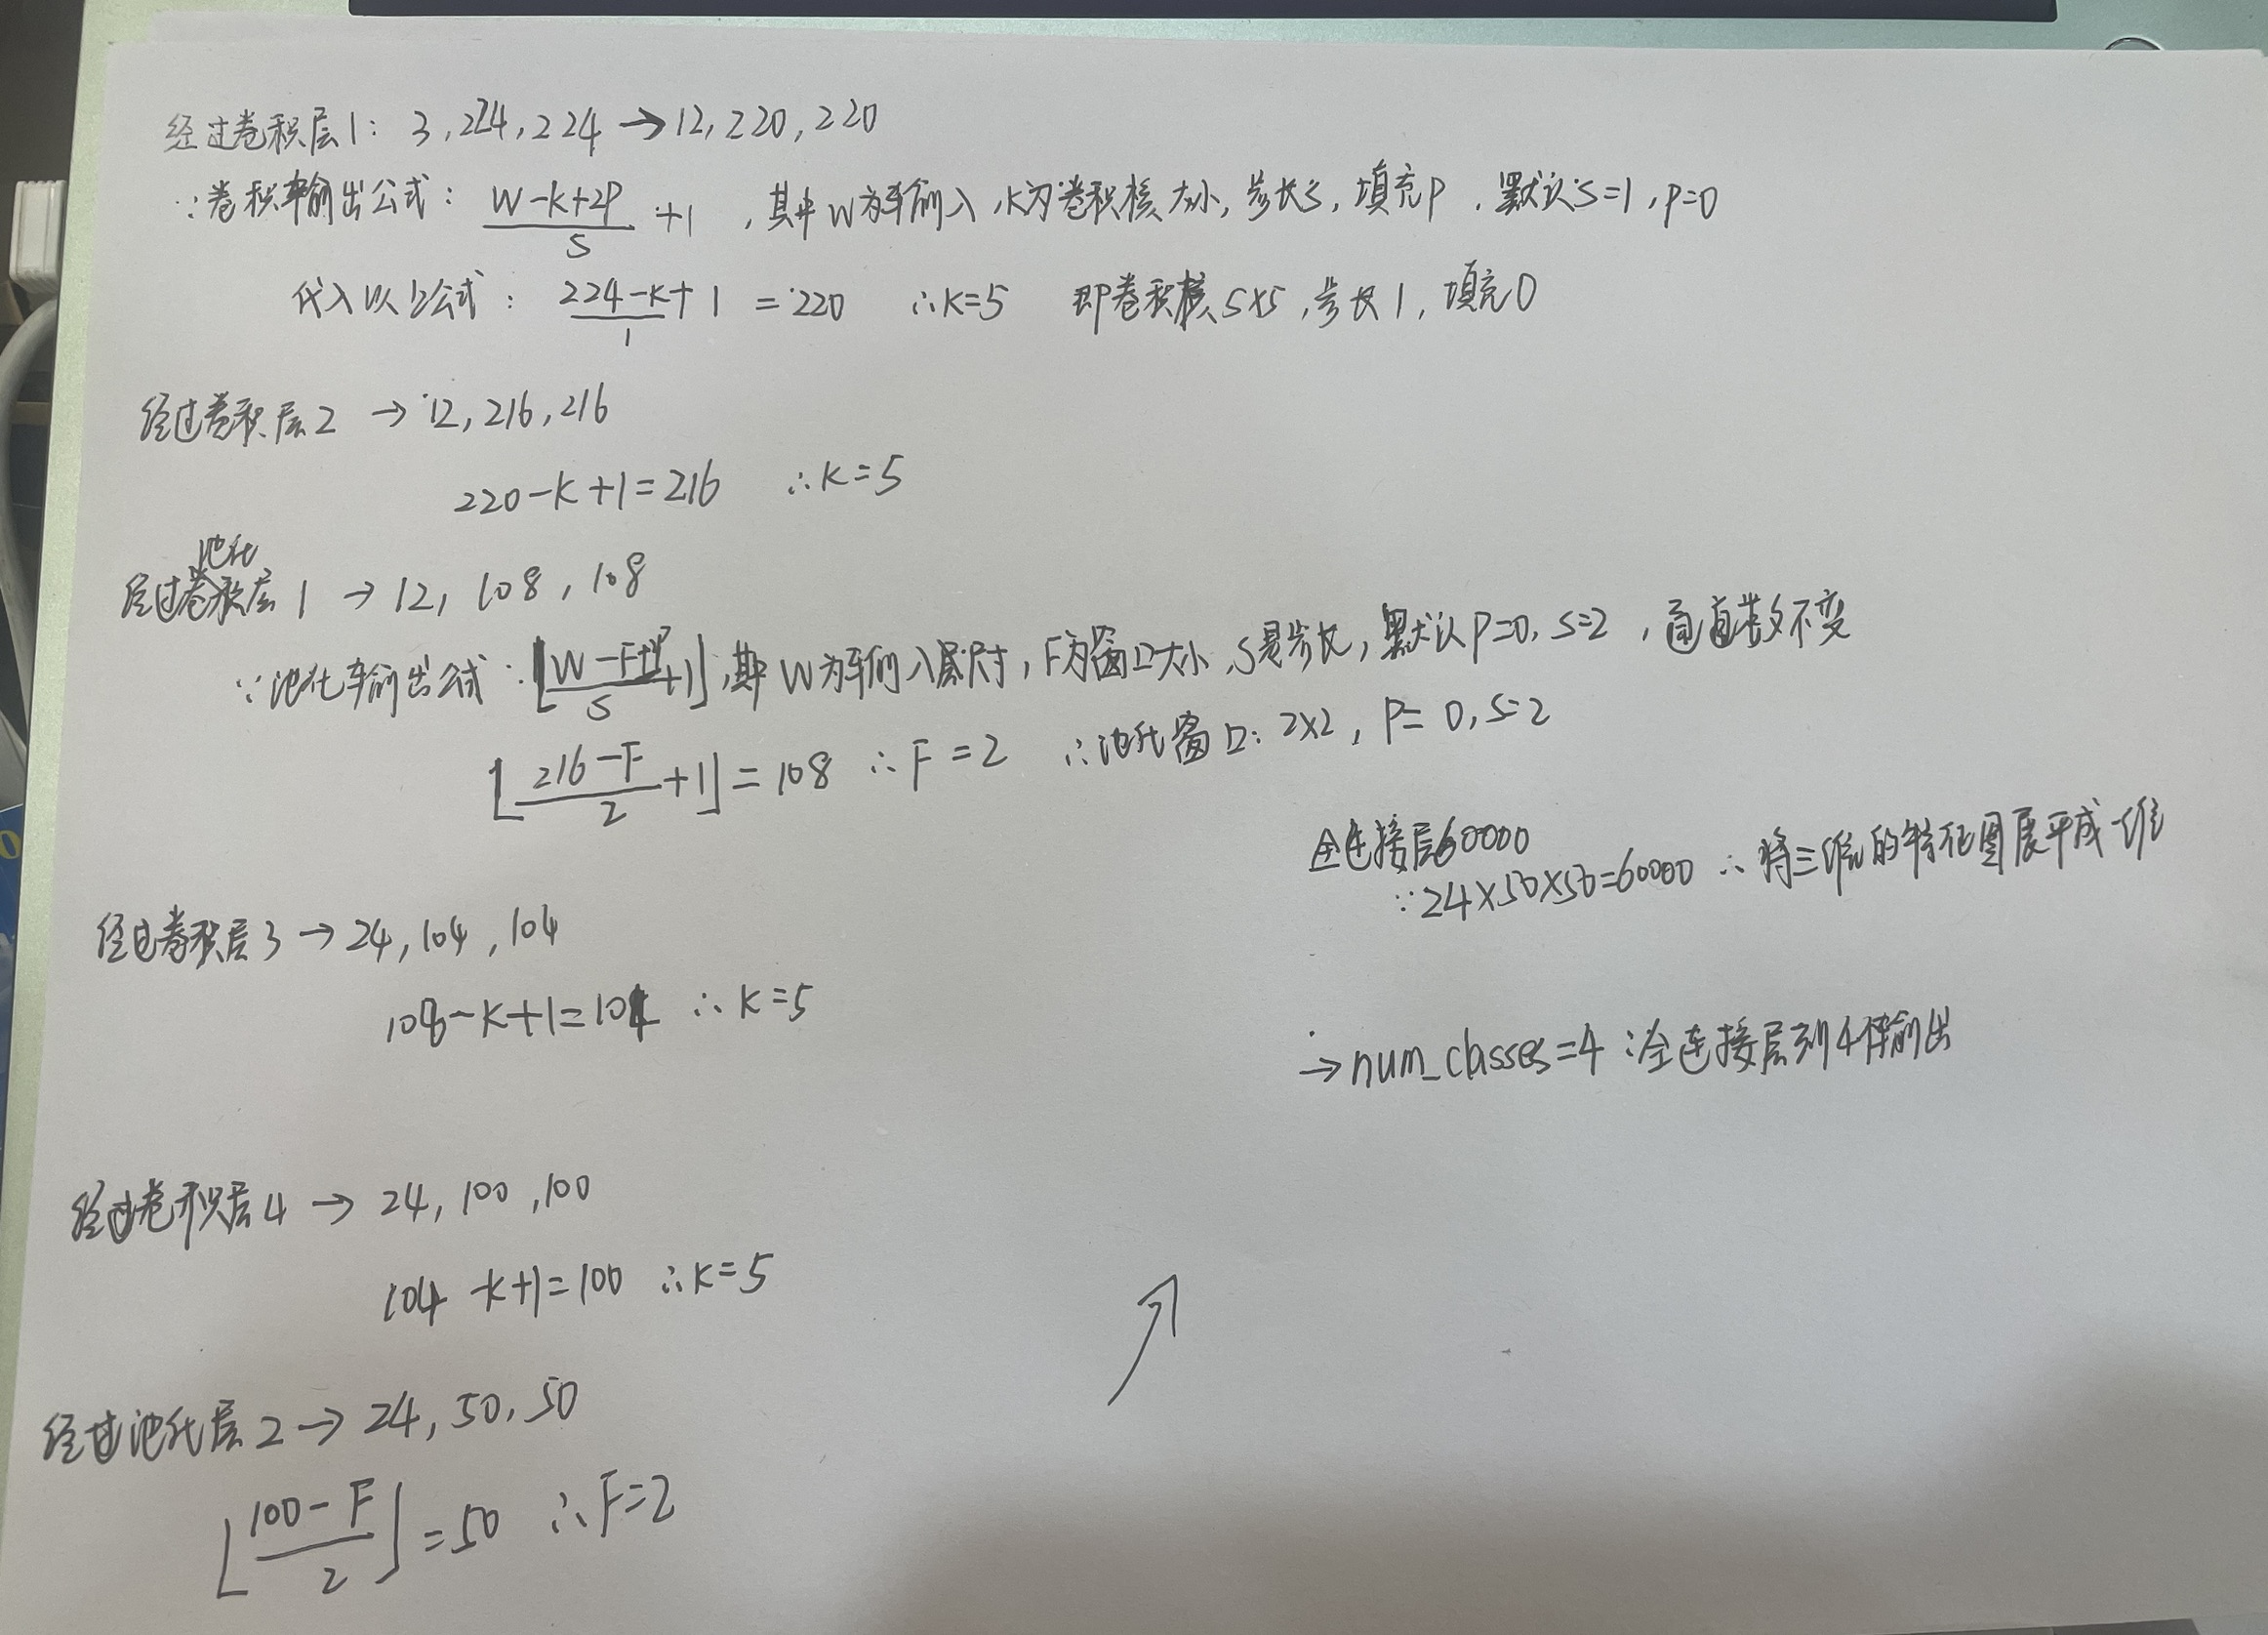 经过卷积层1: 3,224,224→12,220,220
∵卷积输出公式: (W-K+2P)/S +1 ,其中W为输入,K为卷积核大小,步长S,填充P,默认S=1,P=0
代入以上公式: (224-K)/1 + 1 = 220 ∴K=5 即卷积核5×5,步长1,填充0
经过卷积层2 → 12,216,216
220-K+1=216 ∴K=5
池化
经过卷积层1 → 12, 108, 108
∵池化输出公式: ⌊(W-F+2P)/S+1⌋,其中W为输入层尺寸,F为窗口大小,S是步长,默认P=0,S=2,通道数不变
⌊(216-F)/2+1⌋=108 ∴F=2 ∴池化窗口:2×2, P=0,S=2
经过卷积层3 → 24,104,104
108-K+1=104 ∴K=5
经过卷积层4 → 24,100,100
104-K+1=100 ∴K=5
经过池化层2→ 24,50,50
⌊(100-F)/2⌋=50 ∴F=2
全连接层60000
∵24×50×50=60000 ∴将三维的特征图展平成一维
→num_classes=4:全连接层到4个输出